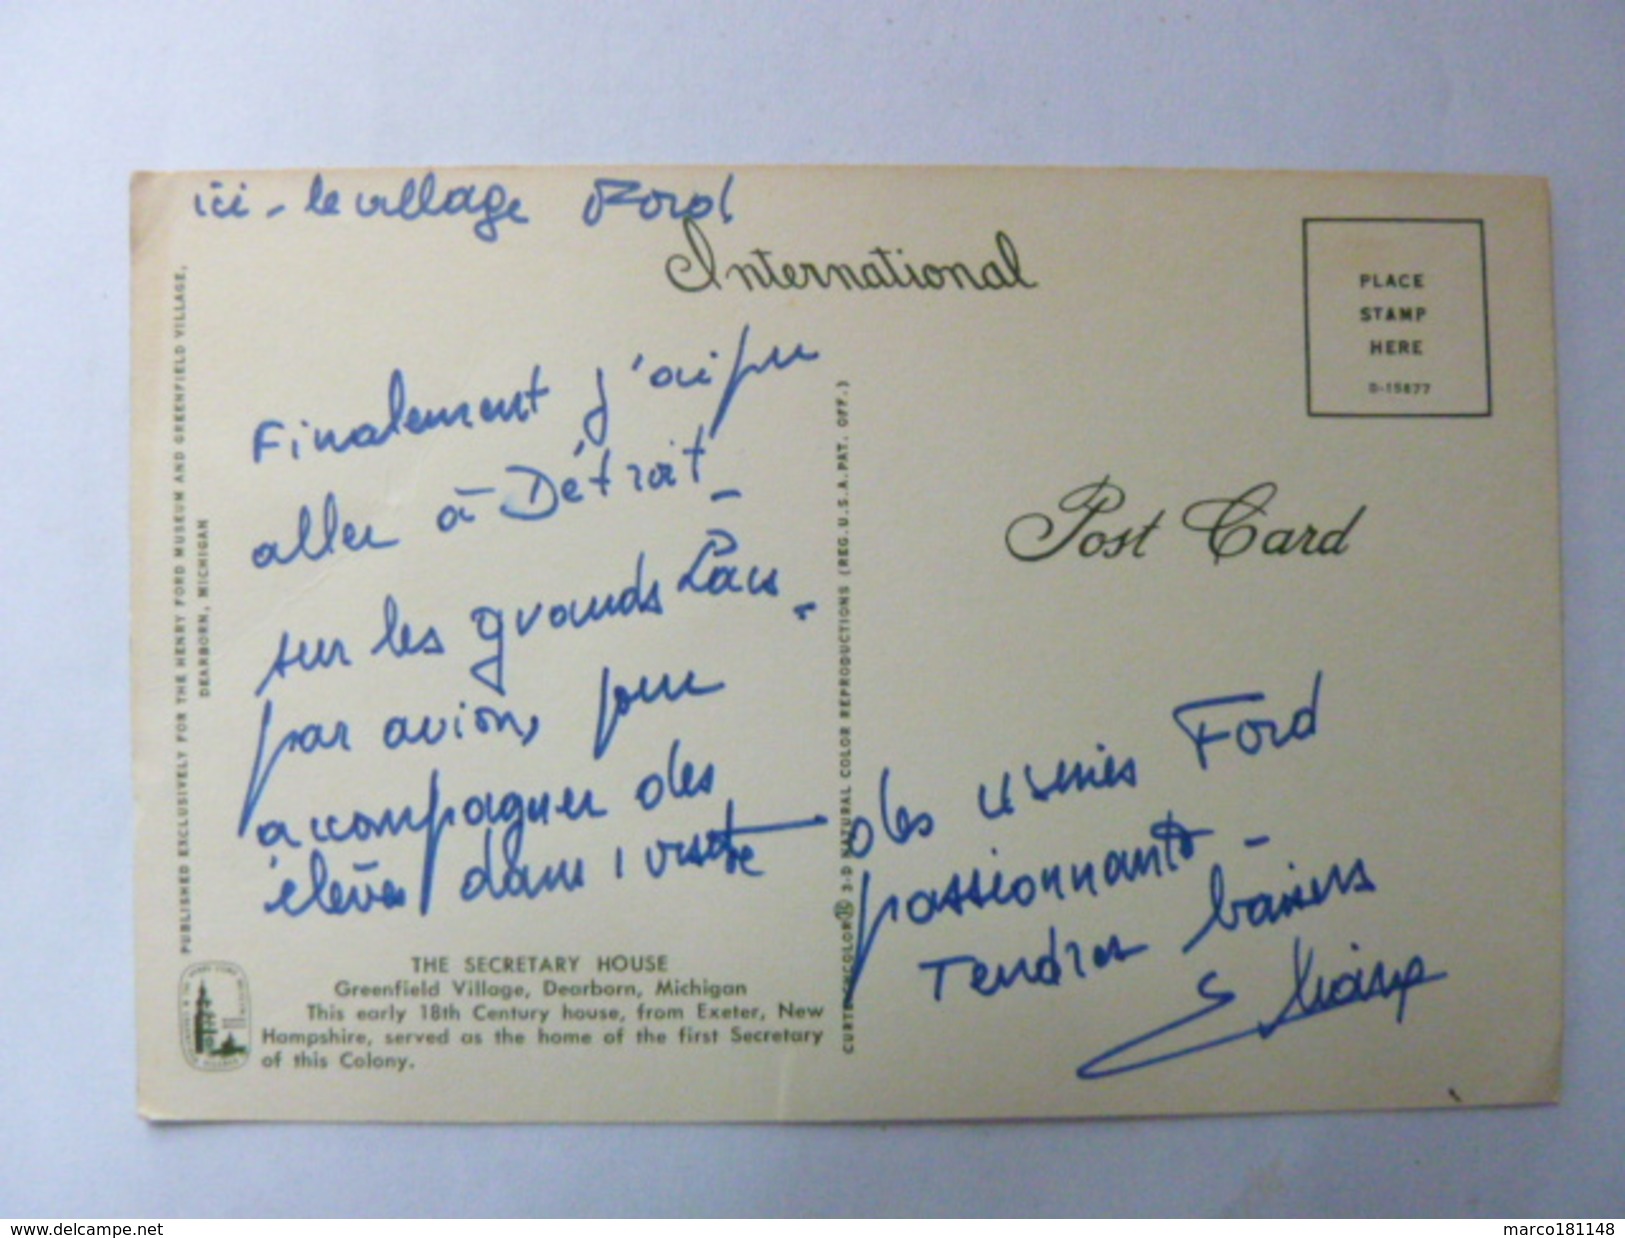 ici - le village Ford
International
PLACE
STAMP
HERE
D-15877
Post Card
Finalement j'ai pu
aller à Détroit -
sur les grands Lacs -
par avion, pour
accompagner des
élèves dans 1 visite
des usines Ford
passionnante -
Tendres baisers
PUBLISHED EXCLUSIVELY FOR THE HENRY FORD MUSEUM AND GREENFIELD VILLAGE,
DEARBORN, MICHIGAN
CURTEICHCOLOR 3-D NATURAL COLOR REPRODUCTIONS (REG. U.S.A. PAT. OFF.)
THE SECRETARY HOUSE
Greenfield Village, Dearborn, Michigan
This early 18th Century house, from Exeter, New
Hampshire, served as the home of the first Secretary
of this Colony.
www.delcampe.net
marco181148